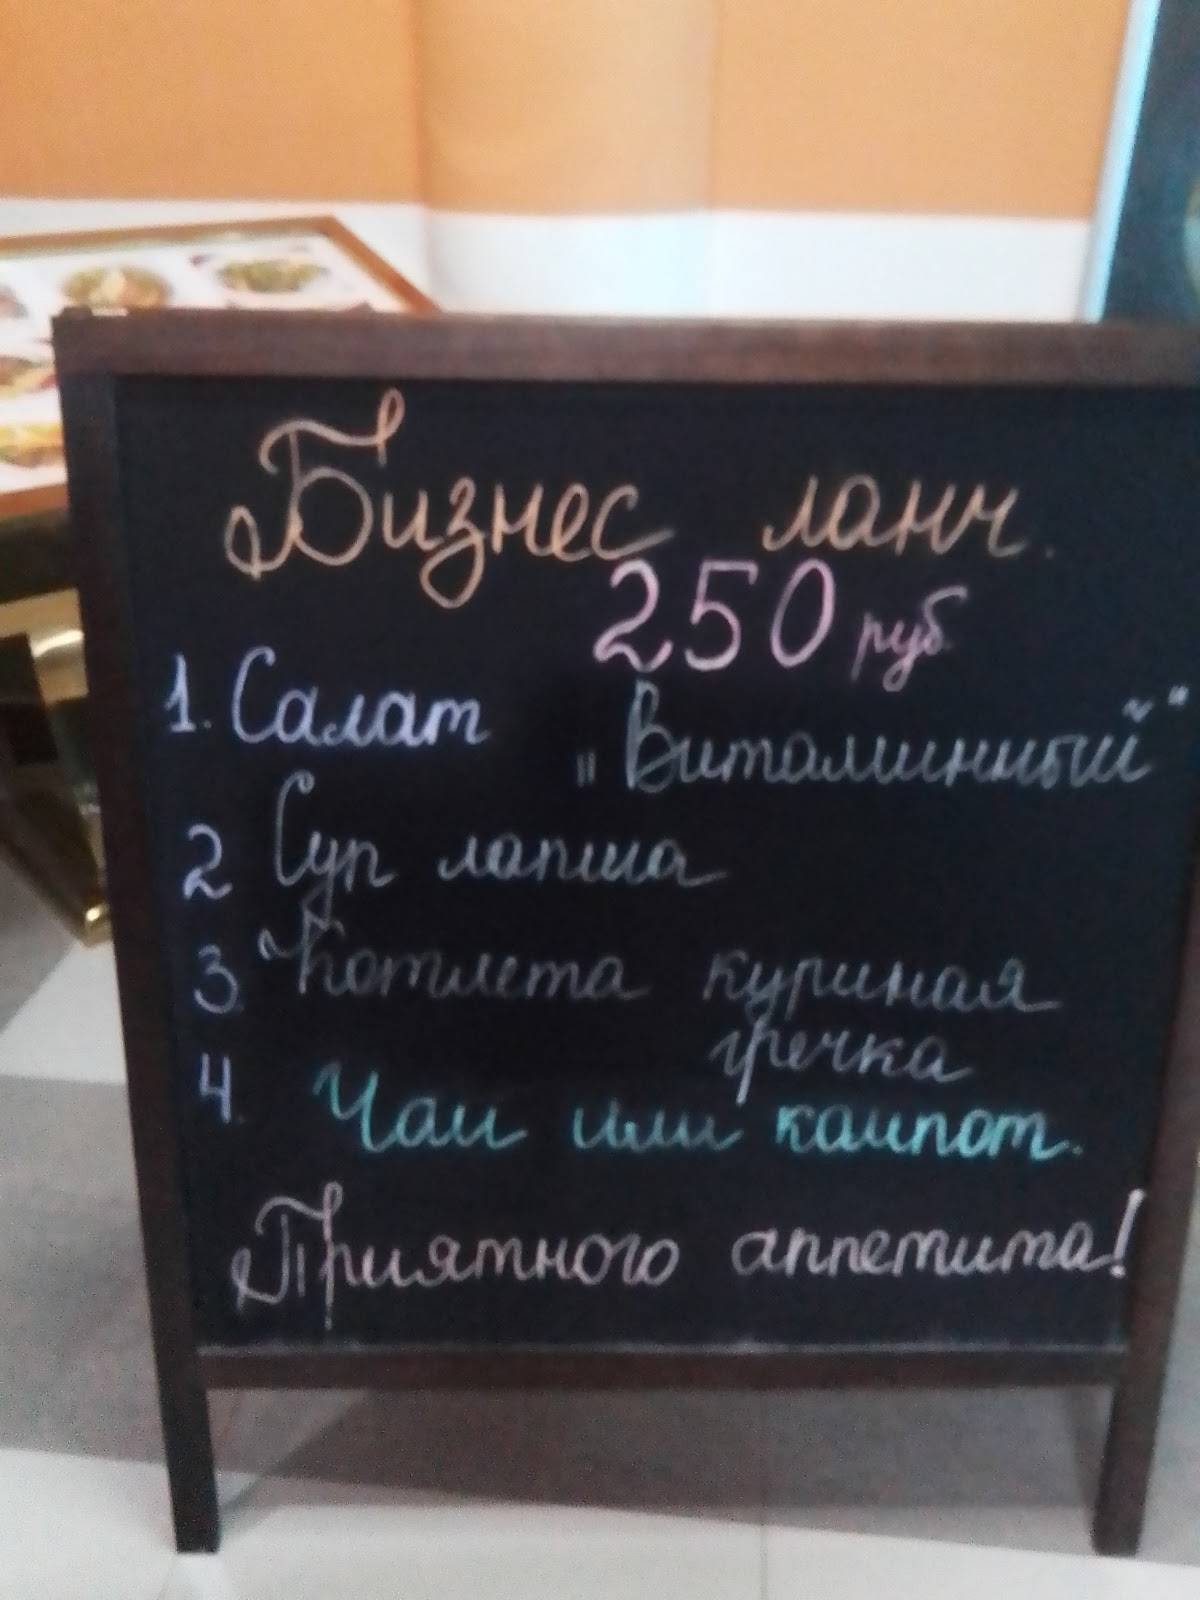 Бизнес ланч.
250 руб.
1. Салат „Витаминный"
2 Суп лапша
3. Котлета куриная
гречка
4. Чаи или каипот.
Приятного аппетита!